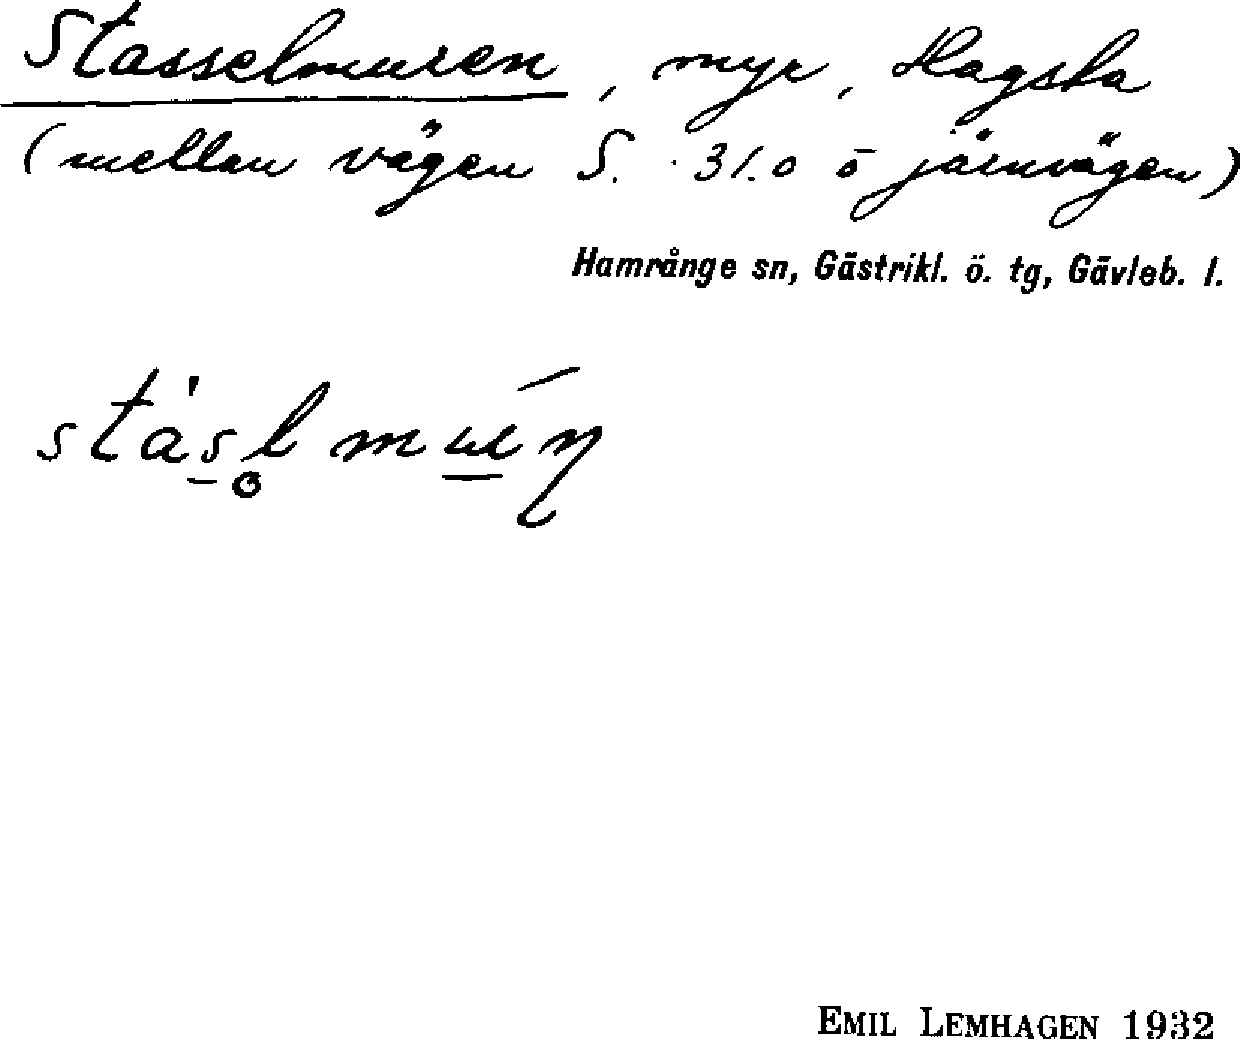 Stasselmuren, myr, Hagsta
(mellan vägen S. 31.0 ō järnvägen)
Hamrånge sn, Gästrikl. ö. tg, Gävleb. l.
EMIL LEMHAGEN 1932